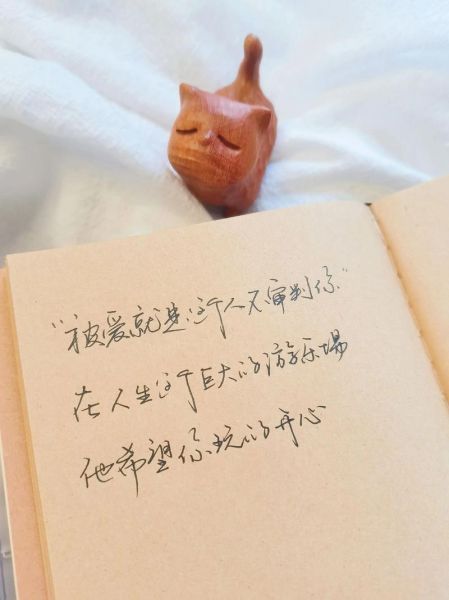 “被爱就是这个人不审判你”
在人生这个巨大的游乐场
他希望你玩的开心